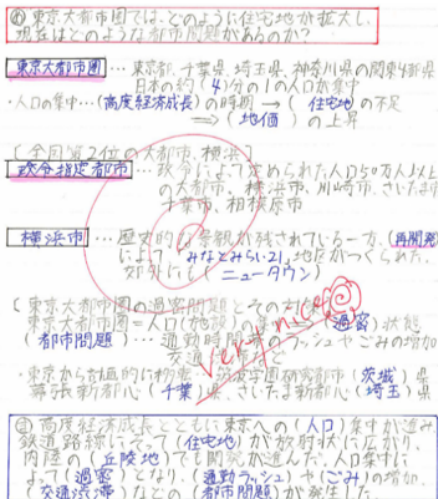 東京大都市圏では、どのように住宅地が拡大し、
現在はどのような都市問題があるのか?
東京大都市圏…東京都、千葉県、埼玉県、神奈川県の関東4都県
日本の約(4)分の1の人口が集中
・人口の集中…(高度経済成長)の時期→(住宅地)の不足
⇒(地価)の上昇
[全国第2位の大都市、横浜]
政令指定都市…政令によって定められた人口50万人以上
の大都市、横浜市、川崎市、さいたま市
千葉市、相模原市
横浜市…歴史的な景観が残されている一方、(再開発)
によって、「みなとみらい21」地区がつくられた。
郊外にも(ニュータウン)
(東京大都市圏の過密問題とその
東京大都市圏=人口(施設)の (過密)状態
(都市問題)…通勤時間 のラッシュやごみの増加
交通 ど
very nice
・東京から計画的に移 学園研究都市(茨城)県
幕張新都心(千葉)県、さいたま新都心(埼玉)県
高度経済成長とともに東京への(人口)集中が進み
鉄道路線にそって(住宅地)が放射状に広がり、
内陸の(丘陵地)でも開発が進んだ。人口集中に
よって(過密)となり、(通勤ラッシュ)や(ごみ)の増加、
(交通渋滞)などの(都市問題)が発生